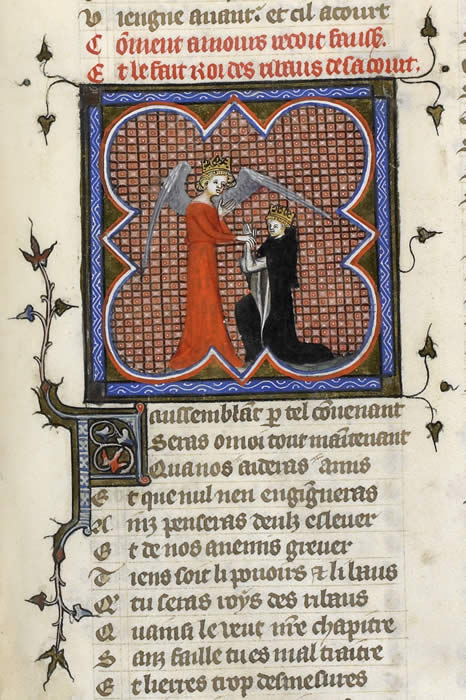 V iengne auant. et cil acourt
C õment amours recoit fausse.
E t le fait roi des ribaus de sa court.
F aussemblãt p tel cõuenant
Seras o moi tout maintenant
Qua nos aideras amis
E t que nul nen engigneras
A inz penseras deulz esleuer
E t de nos anemis greuer
T iens soit li pouoirs & li baus
Q' tu seras roys des ribaus
Q uainsi le veut nr̃e chapitre
S anz faille tu es mal traitre
E t lierres trop desmesures